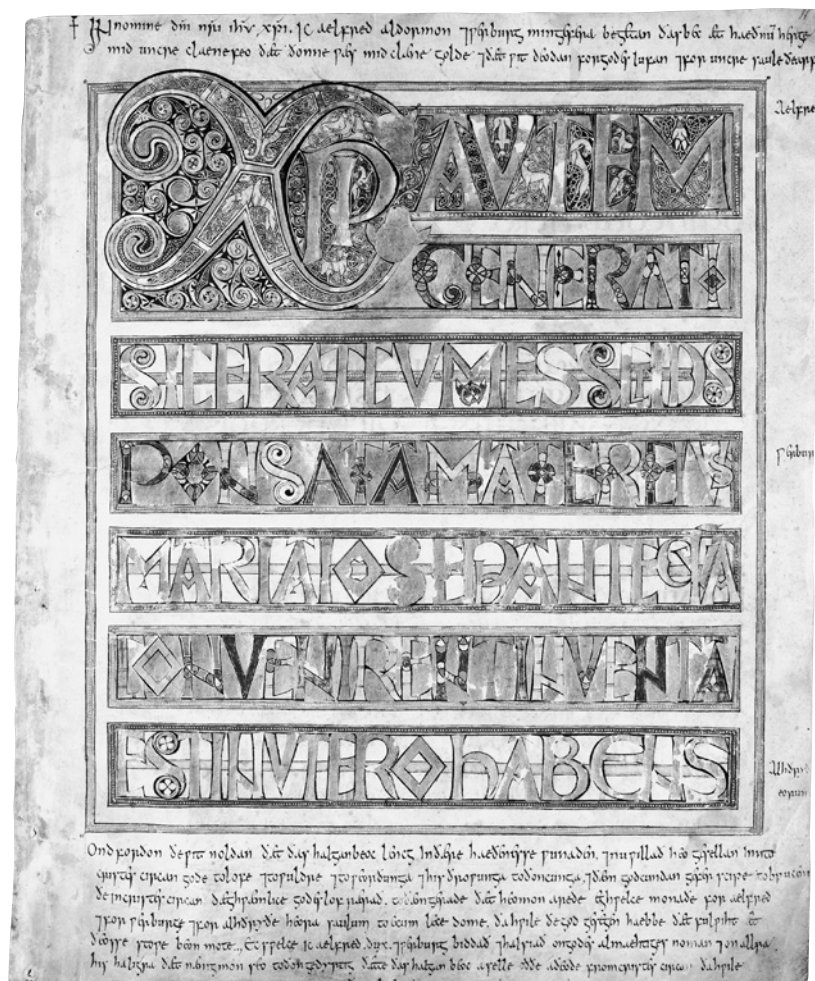 + In nomine dñi nr̄i ihū xp̄i. Ic aelfred aldormon ⁊ perburg min gefera begetan ðas bec æt haeðnū herge
mid uncre claene feo ðæt ðonne pæs mid claene golde ⁊ ðæt pit deodan for godes lufan ⁊ for uncre saule ðearfe
Aelfre
XPI AVTEM
GENERATIO
SIC ERAT CVM ESSET DIS
PONSATA MATER EIVS
perbur
MARIA IOSEP ANTEQVA
CONVENIRENT INVENTA
EST IN VTERO HABENS
Alhðryð
eorum
Ond forðon ðe pit noldan ðæt ðas halgan beoc lencg in ðaere haeðenesse punaden, ⁊ nu pillað heo gesellan inn to
cristes circan gode to lofe ⁊ to puldre ⁊ to peorðunga ⁊ his ðropunga to ðoncunga, ⁊ ðæm godcundan geferscipe to brucen
ðe in cristes circan dæghpæmlice godes lof rærað, to ðæm gerade ðæt heo mon arede eghpelce monaðe for aelfred
⁊ for perburge ⁊ for alhðryðe heora saulum to ecum lecedome, ða hpile ðe god gesegen haebbe ðæt fulpiht æt
ðeosse stope beon mote. Ec spelce ic aelfred. dux. ⁊ perburg biddað ⁊ halsiað on godes almaehtiges noman ⁊ on allra
his haligra ðæt nænig mon seo to ðon gedyrstig ðætte ðas halgan beoc aselle oððe aðeode from cristes circan ða hpile